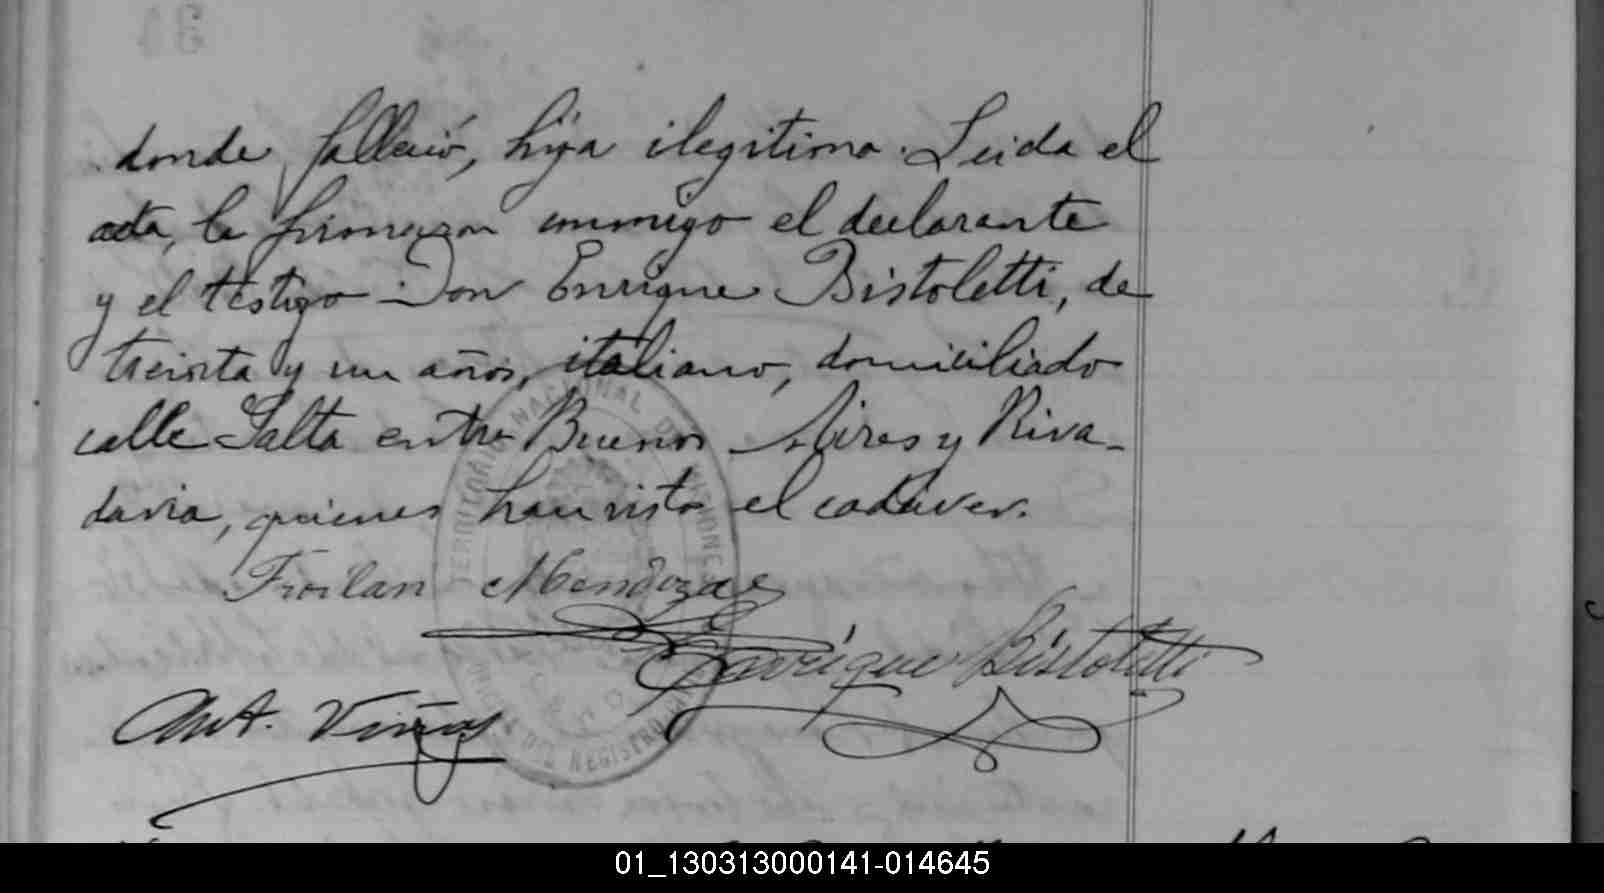 donde falleció, hija ilegitima. Leida el
acta, la firmaron conmigo el declarante
y el testigo Don Enrique Bistoletti, de
treinta y un años, italiano, domiciliado
calle Salta entre Buenos Aires y Riva-
davia, quienes han visto el cadáver.
Froilan Mendoza
Enrique Bistoletti
Ant. Viñas
TERRITORIO NACIONAL DE MISIONES
DEL REGISTRO
01_130313000141-014645